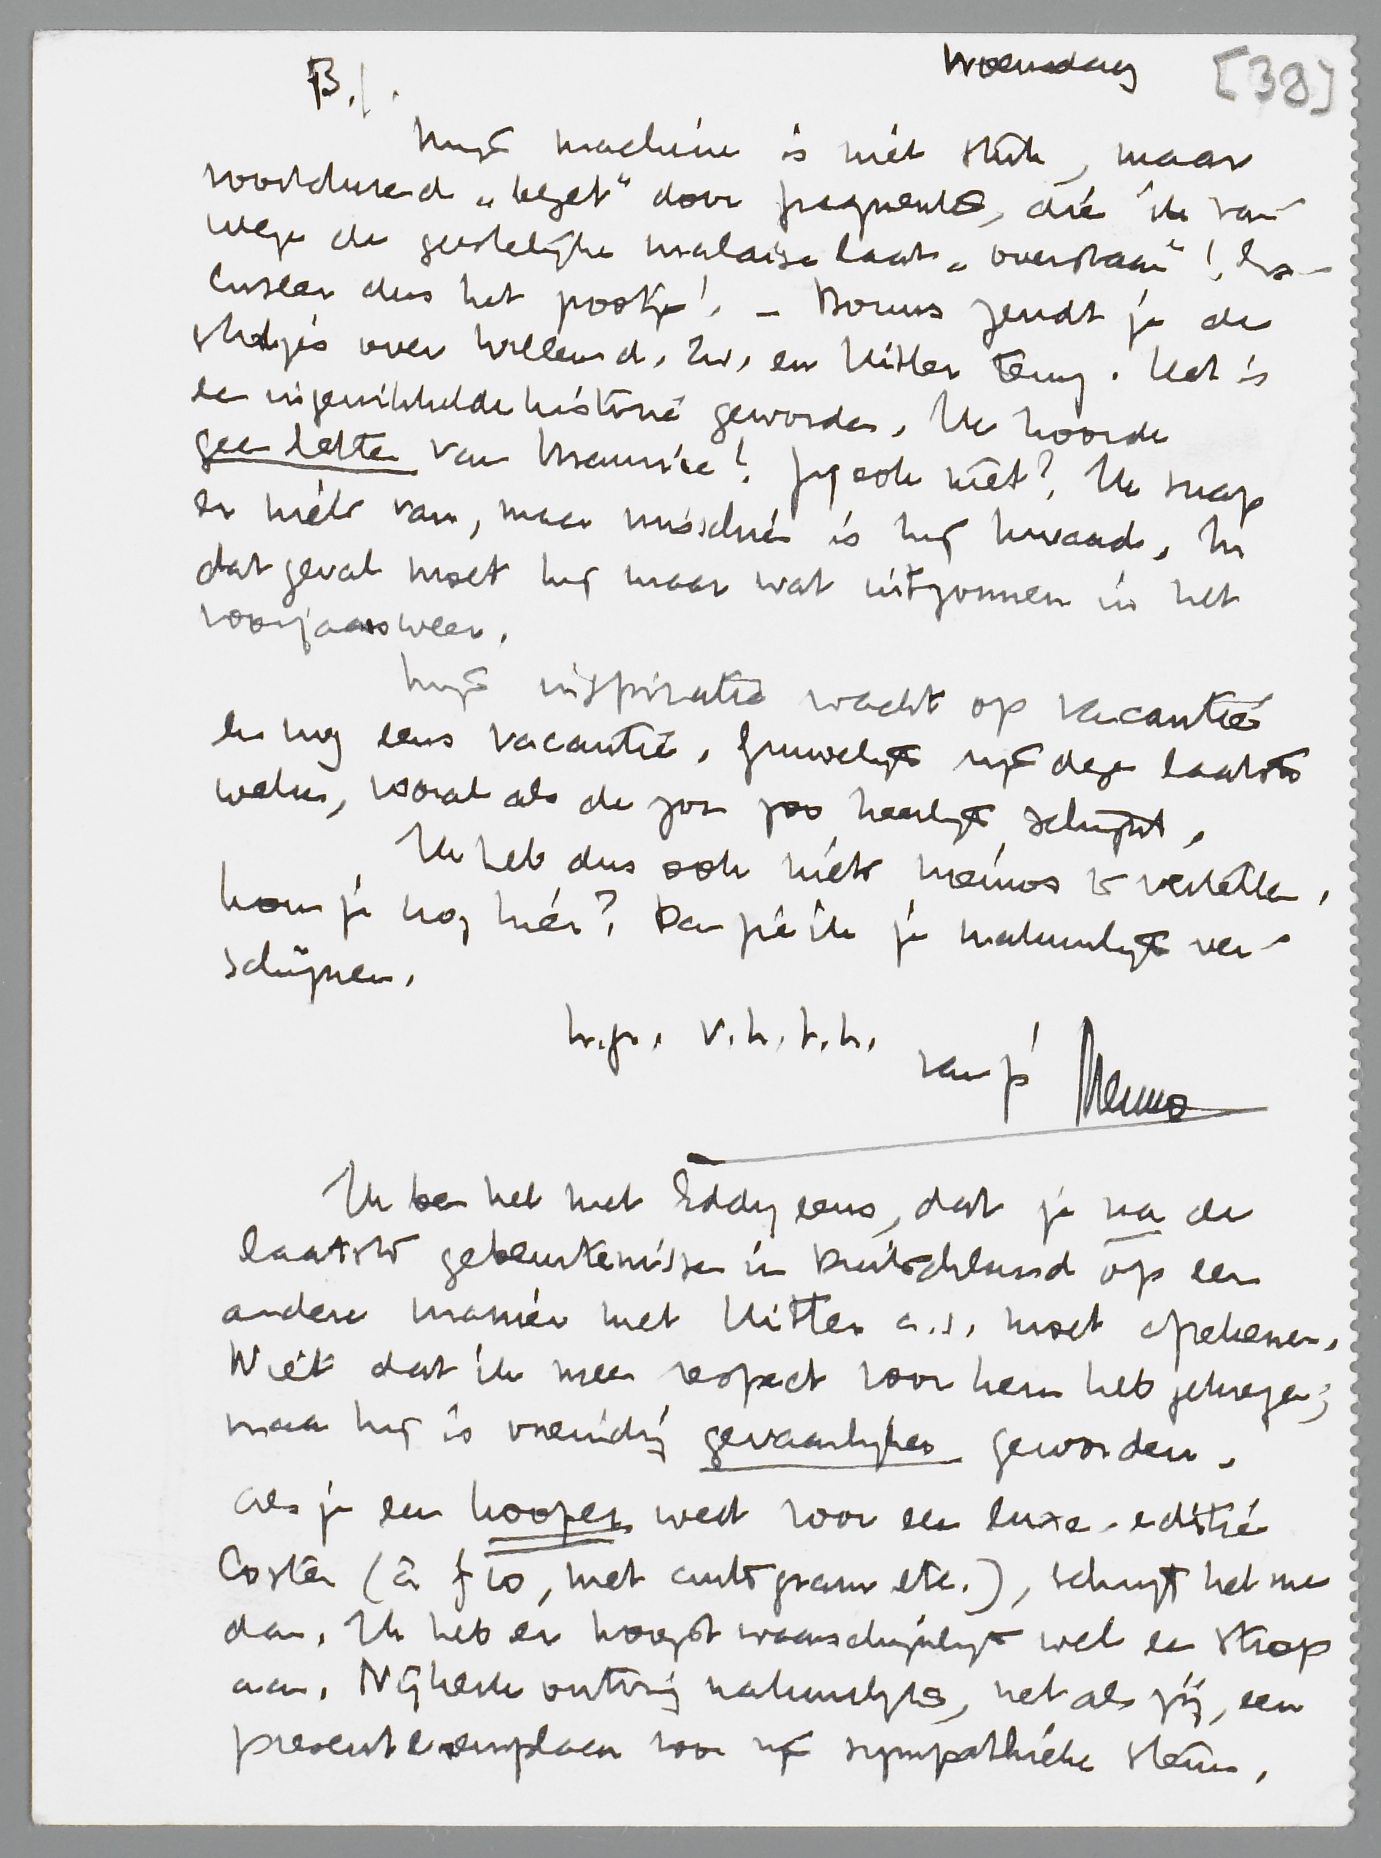 Woensdag [38]
B.!
Mijn machine is niet stuk, maar
voortdurend „bezet" door fragmenten, die ik van-
wege de geestelijke malaise laat „overstaan"! Ex-
cuseer dus het pootje! — Bouws zendt je de
stukjes over Willem d. Zw. en Hitler terug. Het is
een ingewikkelde historie geworden. Ik hoorde
geen letter van Maurice! Jij ook niet? Ik snap
er niets van, maar misschien is hij kwaad. In
dat geval moet hij maar wat uitzonnen in het
voorjaarsweer.
Mijn inspiratie wacht op vacantie
en nog eens vacantie. Gruwelijk zijn deze laatste
weken, vooral als de zon zoo heerlijk schijnt.
Ik heb dus ook niets nieuws te vertellen.
Kom je nog hier? Dan zie ik je natuurlijk ver-
schijnen.
h.gr. v.h.t.h.
van je Menno
Ik ben het met Eddy eens, dat je na de
laatste gebeurtenissen in Duitschland op een
andere manier met Hitler a.s. moet afrekenen.
Niet dat ik meer respect voor hem heb gekregen;
maar hij is vreemdig gevaarlijker geworden.
Als je een kooper weet voor een luxe-editie
Coster (à f 10, met autogram etc.), schrijf het me
dan. Ik heb er hoogst waarschijnlijk wel een strop
aan. Nijkerk ontving natuurlijk, net als jij, een
presentexemplaar voor zijn sympathieke steun.